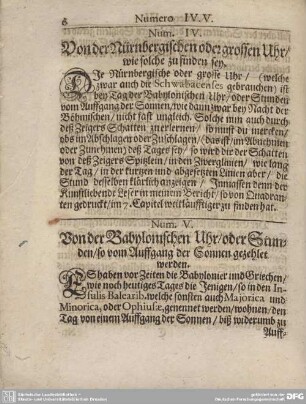 6
Numero IV. V.
Num. IV.
Von der Nürnbergischen oder grossen Uhr/
wie solche zu finden sey.
DJe Nürnbergische oder grosse Uhr/ (welche
zwar auch der Schwabacenses gebrauchen) ist
bey Tag der Babylonischen Uhr/ oder Stunden
vom Auffgang der Sonnen/ wie dann zwar bey Nacht der
Böhmischen/ nicht fast ungleich. Solche nun auch durch
deß Zeigers Schatten zu erlernen/ so must du mercken/
obs im Abschlagen oder Zuschlagen/ das ist/ im Abnehmen
oder Zunehmen) deß Tages sey/ so wird dir der Schatten
von deß Zeigers Spitzlein/ in den Zwerglinien/ wie lang
der Tag/ in der kurtzen und abgesetzten Linien aber/ die
Stund desselben klärlich anzeigen/ Jnmassen denn der
Kunstliebende Leser in meinem Bericht/ so vom Quadran-
ten gedruckt/ im 7. Capitel weitläufftiger zu finden hat.
Num. V.
Von der Babylonischen Uhr/ oder Stun-
den/ so vom Auffgang der Sonnen gezehlet
werden.
ES haben vor Zeiten die Babylonier und Griechen/
wie noch heutiges Tages die Jenigen/ so in den In-
sulis Balearib. welche sonsten auch Majorica und
Minorica, oder Ophiusæ, genennet werden/ wohnen/ den
Tag von einem Auffgang der Sonnen/ biß widerumb zu
Auff-